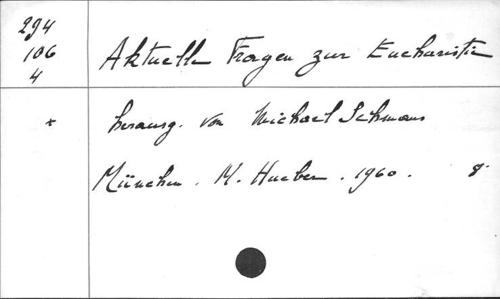 294
106
4
Aktuelle Fragen zur Eucharistie
*
herausg. von Michael Schmaus
München. M. Hueber. 1960. 8°